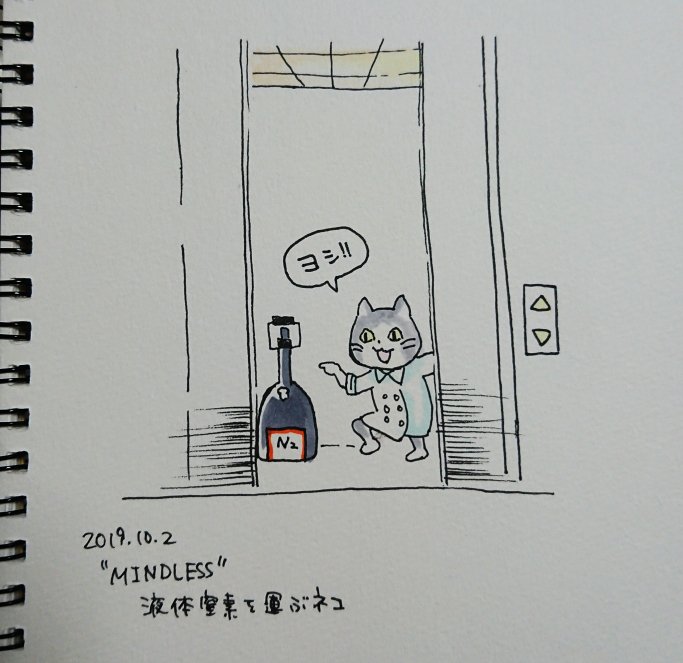 ヨシ!!
N2
2019.10.2
"MINDLESS"
液体窒素を運ぶネコ